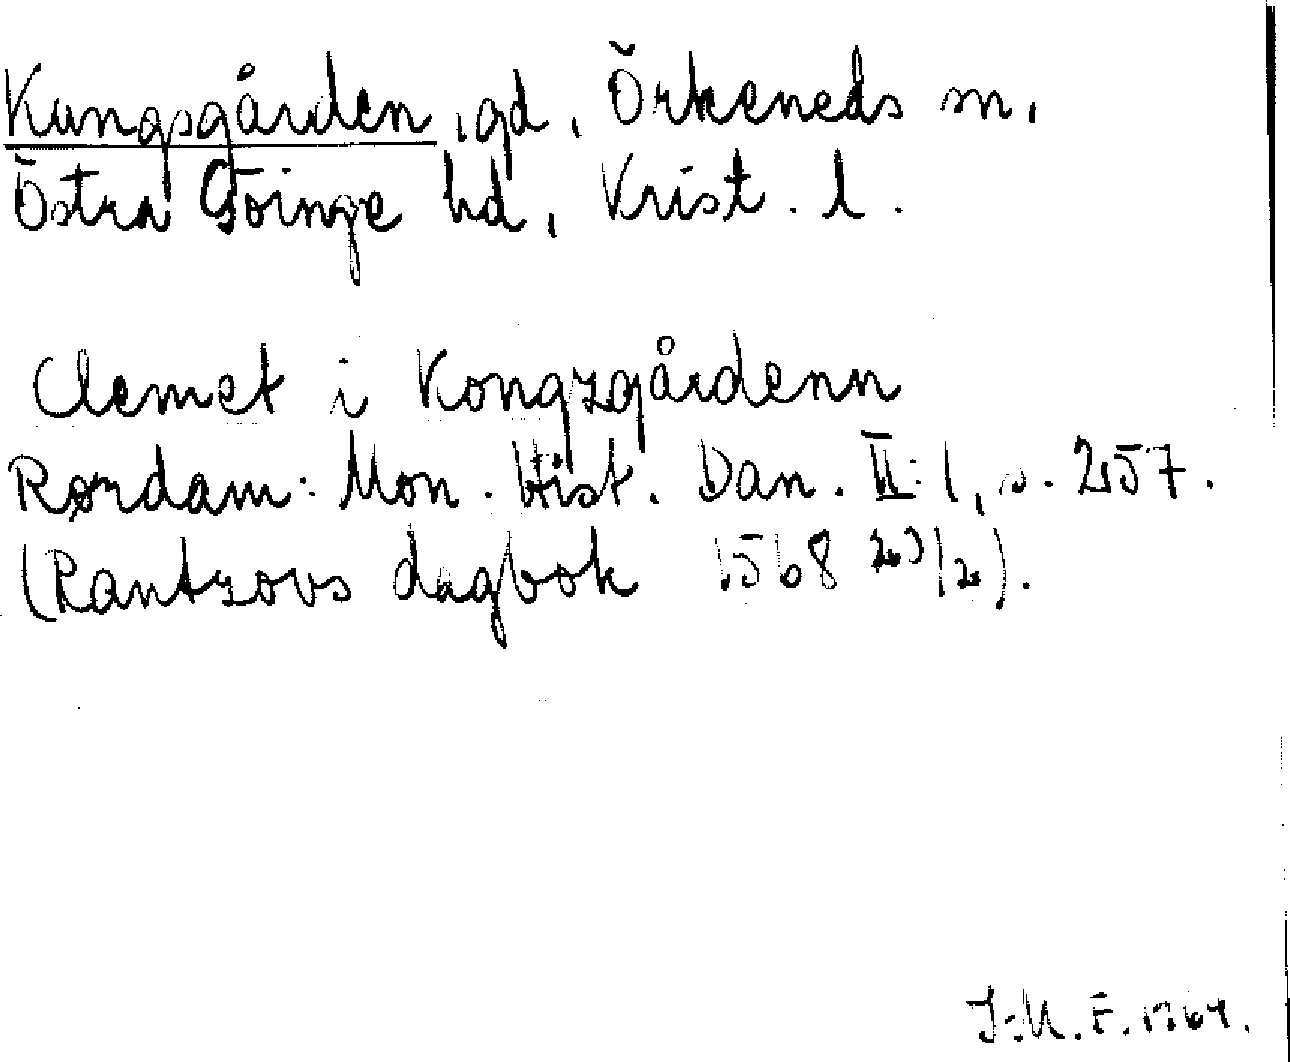 Kungsgården, gd, Örkeneds sn,
Östra Göinge hd, Krist. l.
Clemet i Kongzgårdenn
Rørdam: Mon. Hist. Dan. II:1, s. 257.
(Rantzovs dagbok 1568 20/2).
J.M.F. 1964.